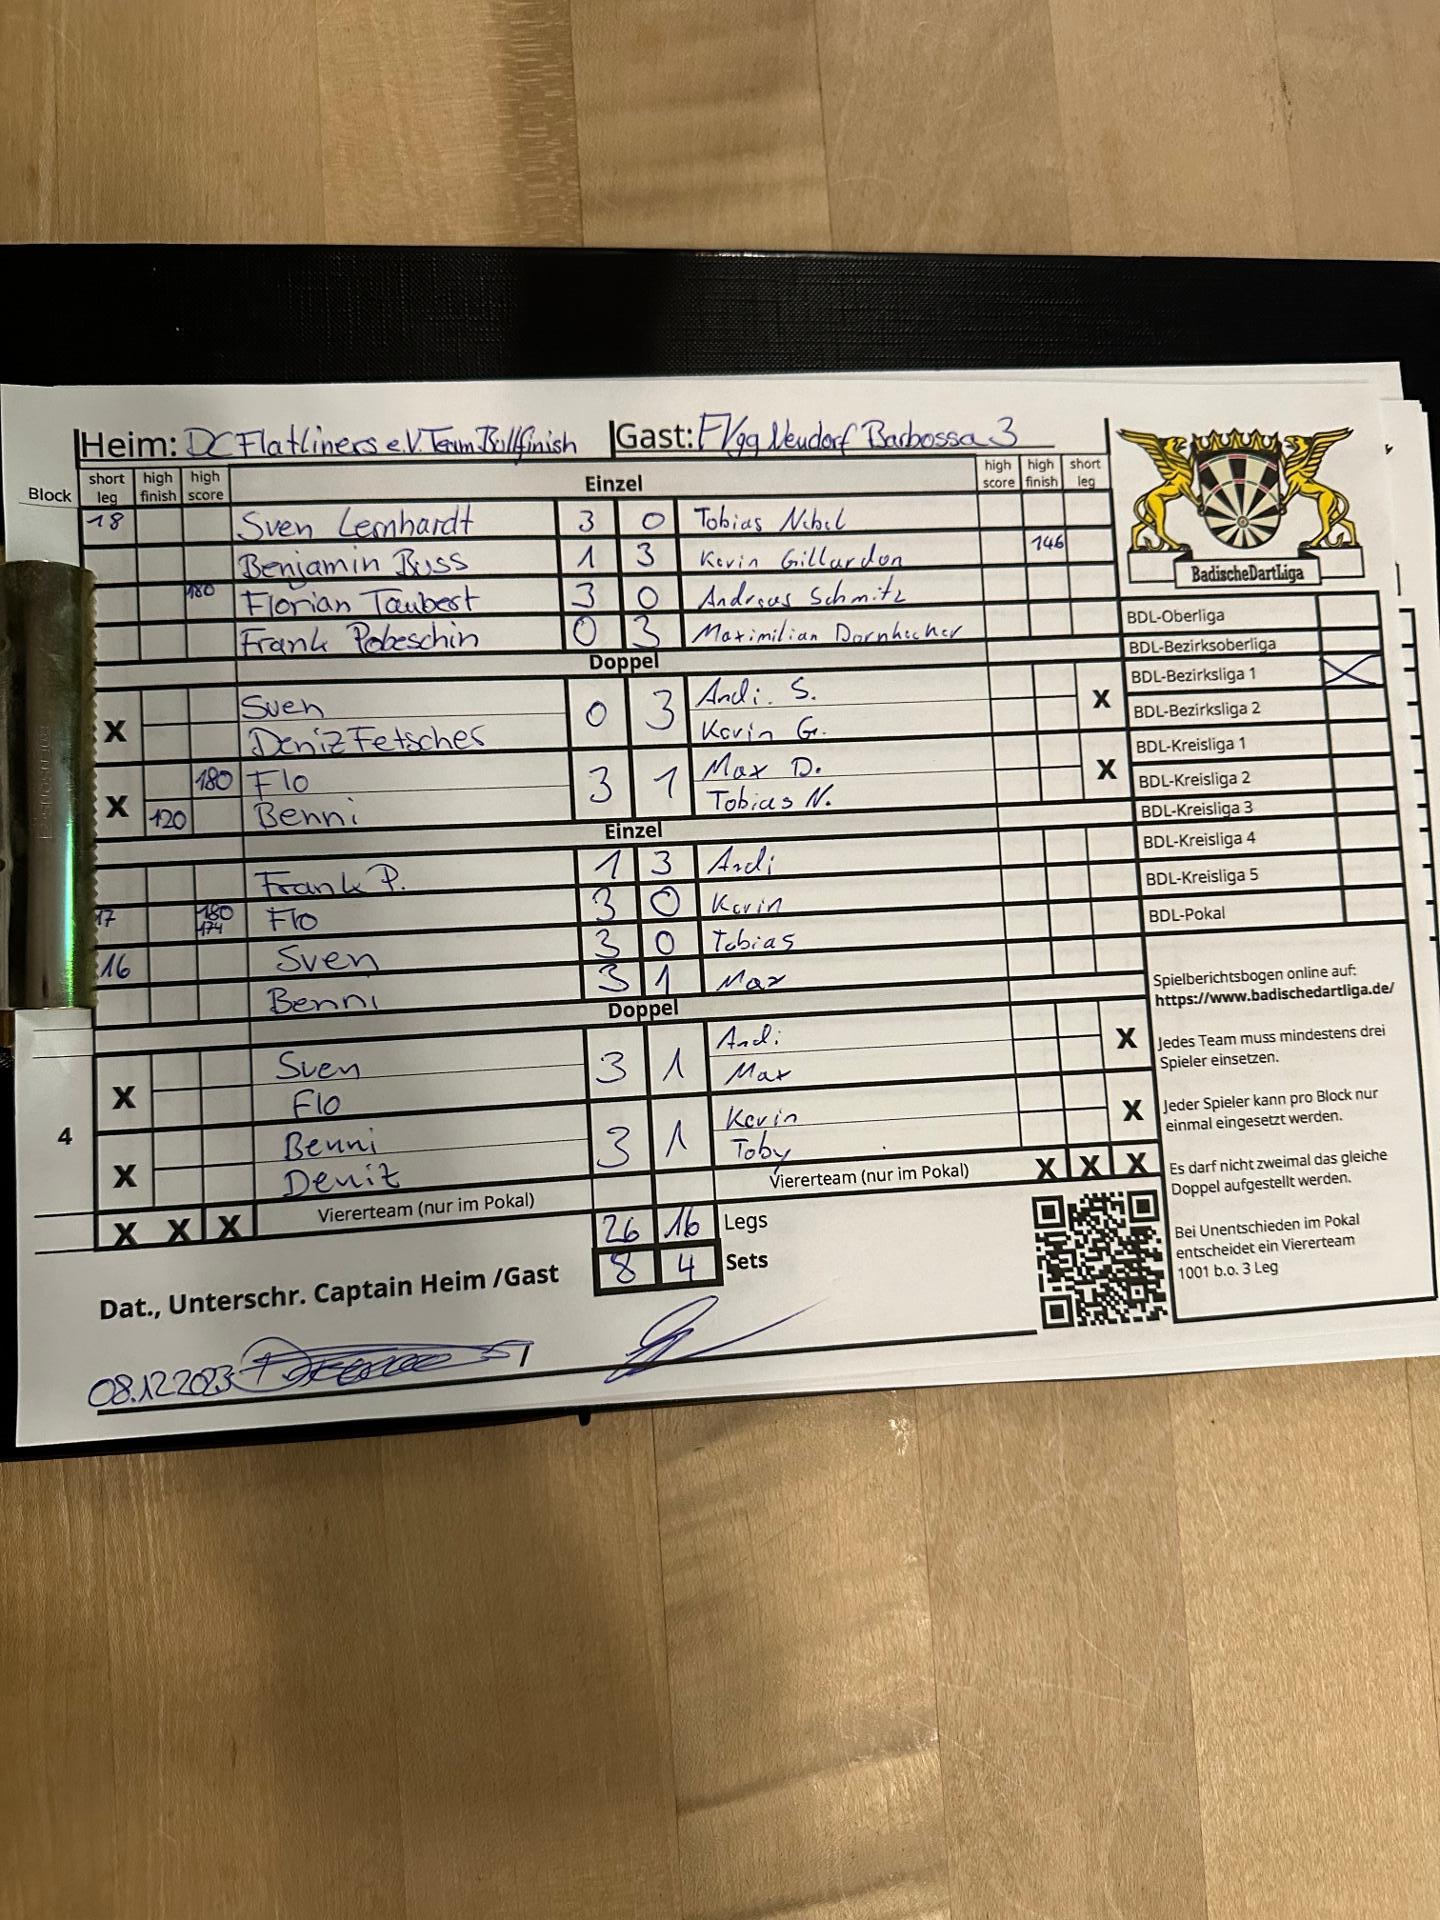 Heim: DC Flatliners e.V. Team Bullfinish Gast: FVgg Neudorf Barbossa 3
Block short leg high finish high score Einzel high score high finish short leg
18 Sven Lernhardt 3 0 Tobias Nibel
Benjamin Buss 1 3 Kevin Gillardon 146
180 Florian Taubert 3 0 Andreas Schmitz
Frank Pobeschin 0 3 Maximilian Dornhecher
Doppel
Sven Andi. S.
X 0 3 X
Deniz Fetscher Kevin G.
180 Flo Max D.
X 3 1 X
120 Benni Tobias N.
Einzel
Frank P. 1 3 Andi
17 180 174 Flo 3 0 Kevin
16 Sven 3 0 Tobias
Benni 3 1 Max
Doppel
Sven Andi
X 3 1 X
Flo Max
4
Benni Kevin
X 3 1 X
Deniz Toby
X X X Viererteam (nur im Pokal) Viererteam (nur im Pokal) X X X
26 16 Legs
8 4 Sets
Dat., Unterschr. Captain Heim /Gast
08.12.2023
BadischeDartLiga
BDL-Oberliga
BDL-Bezirksoberliga
BDL-Bezirksliga 1 X
BDL-Bezirksliga 2
BDL-Kreisliga 1
BDL-Kreisliga 2
BDL-Kreisliga 3
BDL-Kreisliga 4
BDL-Kreisliga 5
BDL-Pokal
Spielberichtsbogen online auf:
https://www.badischedartliga.de/
Jedes Team muss mindestens drei
Spieler einsetzen.
Jeder Spieler kann pro Block nur
einmal eingesetzt werden.
Es darf nicht zweimal das gleiche
Doppel aufgestellt werden.
Bei Unentschieden im Pokal
entscheidet ein Viererteam
1001 b.o. 3 Leg